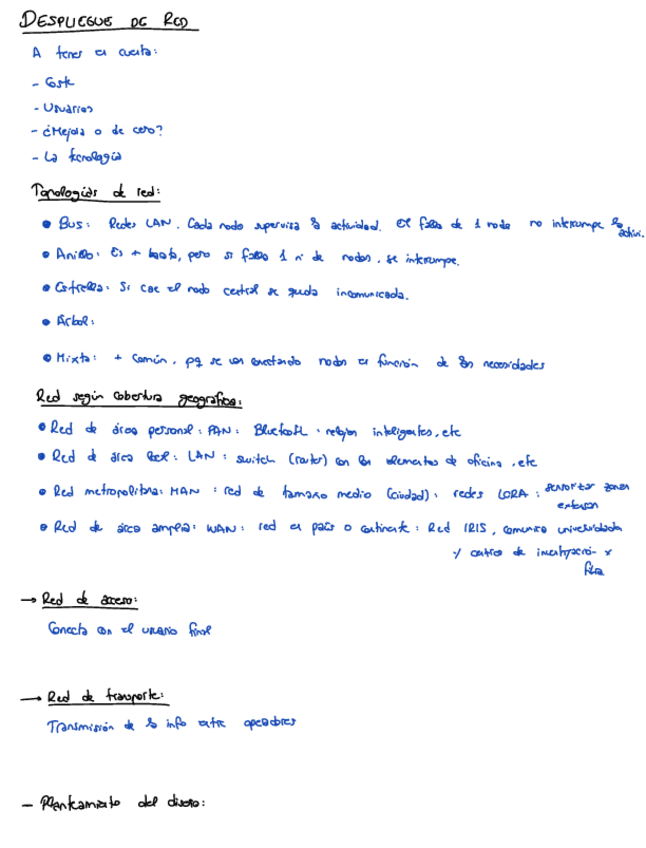 DESPLIEGUE DE RED
A tener en cuenta:
- Coste
- Usuarios
- ¿Mejora o de cero?
- La tecnología
Topologías de red:
• Bus: Redes LAN. Cada nodo supervisa la actividad. El fallo de 1 nodo no interrumpe la activi.
• Anillo: Es + barata, pero si falla 1 nº de nodos, se interrumpe.
• Estrella: Si cae el nodo central se queda incomunicada.
• Árbol:
• Mixta: + común, pq se van conectando nodos en función de las necesidades
Red según cobertura geográfica:
• Red de área personal: PAN: Bluetooth: relojes inteligentes, etc
• Red de área local: LAN: switch (router) con los elementos de oficina, etc
• Red metropolitana: MAN: red de tamaño medio (ciudad): redes LORA: sensorizar zonas
extensas
• Red de área amplia: WAN: red en país o continente: Red IRIS, comunica universidades
y centros de investigación x
fibra
→ Red de acceso:
Conecta con el usuario final
→ Red de transporte:
Transmisión de la info entre operadores
- Planteamiento del diseño: